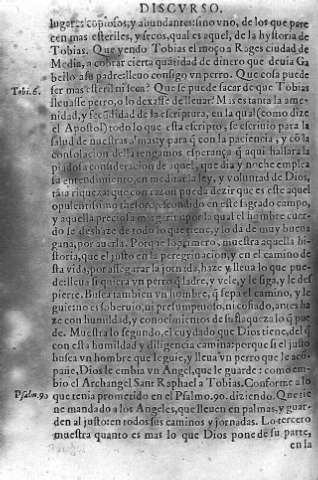 DISCVRSO.
lugares copiosos, y abundantes: sino vno, de los que pare
cen mas esteriles, y secos, qual es aquel, de la hystoria de
Tobias. Que yendo Tobias el moço a Rages ciudad de
Media, a cobrar cierta quãtidad de dinero que deuia Ga
bello a su padre: lleuo consigo vn perro. Que cosa puede
Tobi. 6.
ser mas esteril ni seca? Que se puede sacar de que Tobias
lleuasse perro, o lo dexasse de lleuar? Mas es tanta la ame
nidad, y fecũdidad de la escriptura, en la qual (como dize
el Apostol) todo lo que esta escripto, se escriuio para la
salud de nuestras almas: y para q̃ con la paciencia, y cõ la
consolacion della tengamos esperança q̃ aqui hallara la
piadosa consideracion de aquel, que dia y noche emplea
su entendimiento, en meditar la ley, y voluntad de Dios,
tãta riqueza: que con razon pueda dezir que es este aquel
opulentissimo thesoro, escondido en este sagrado campo,
y aquella preciosa margarita: por la qual el hombre cuer-
do se deshaze de todo lo que tiene, y lo da de muy buena
gana, por auerla. Porque lo primero, muestra aquella his
toria, que el justo en la peregrinacion, y en el camino de
sta vida, por assegurar la jornada, haze y lleua lo que pue
de: lleua si quiera vn perro q̃ ladre, y vele, y le siga, y le des
pierte. Busca tambien vn hombre, q̃ sepa el camino, y le
guie: no es soberuio, ni presumptuoso, ni cõfiado, antes ha
ze con humildad, y conoscimiento de su flaqueza lo q̃ pue
de. Muestra lo segundo, el cuydado que Dios tiene, del q̃
con esta humildad y diligencia camina: porque si el justo
busca vn hombre que le guie, y lleua vn perro que le aco-
pañe, Dios le embia vn Angel, que le guarde: como em-
bio el Archangel Sant Raphael a Tobias. Conforme a lo
Psalm. 90
que tenia prometido en el Psalmo. 90. diziendo. Que tie
ne mandado a los Angeles, que lleuen en palmas, y guar-
den al justo: en todos sus caminos y jornadas. Lo tercero
muestra quanto es mas lo que Dios pone de su parte,
en la